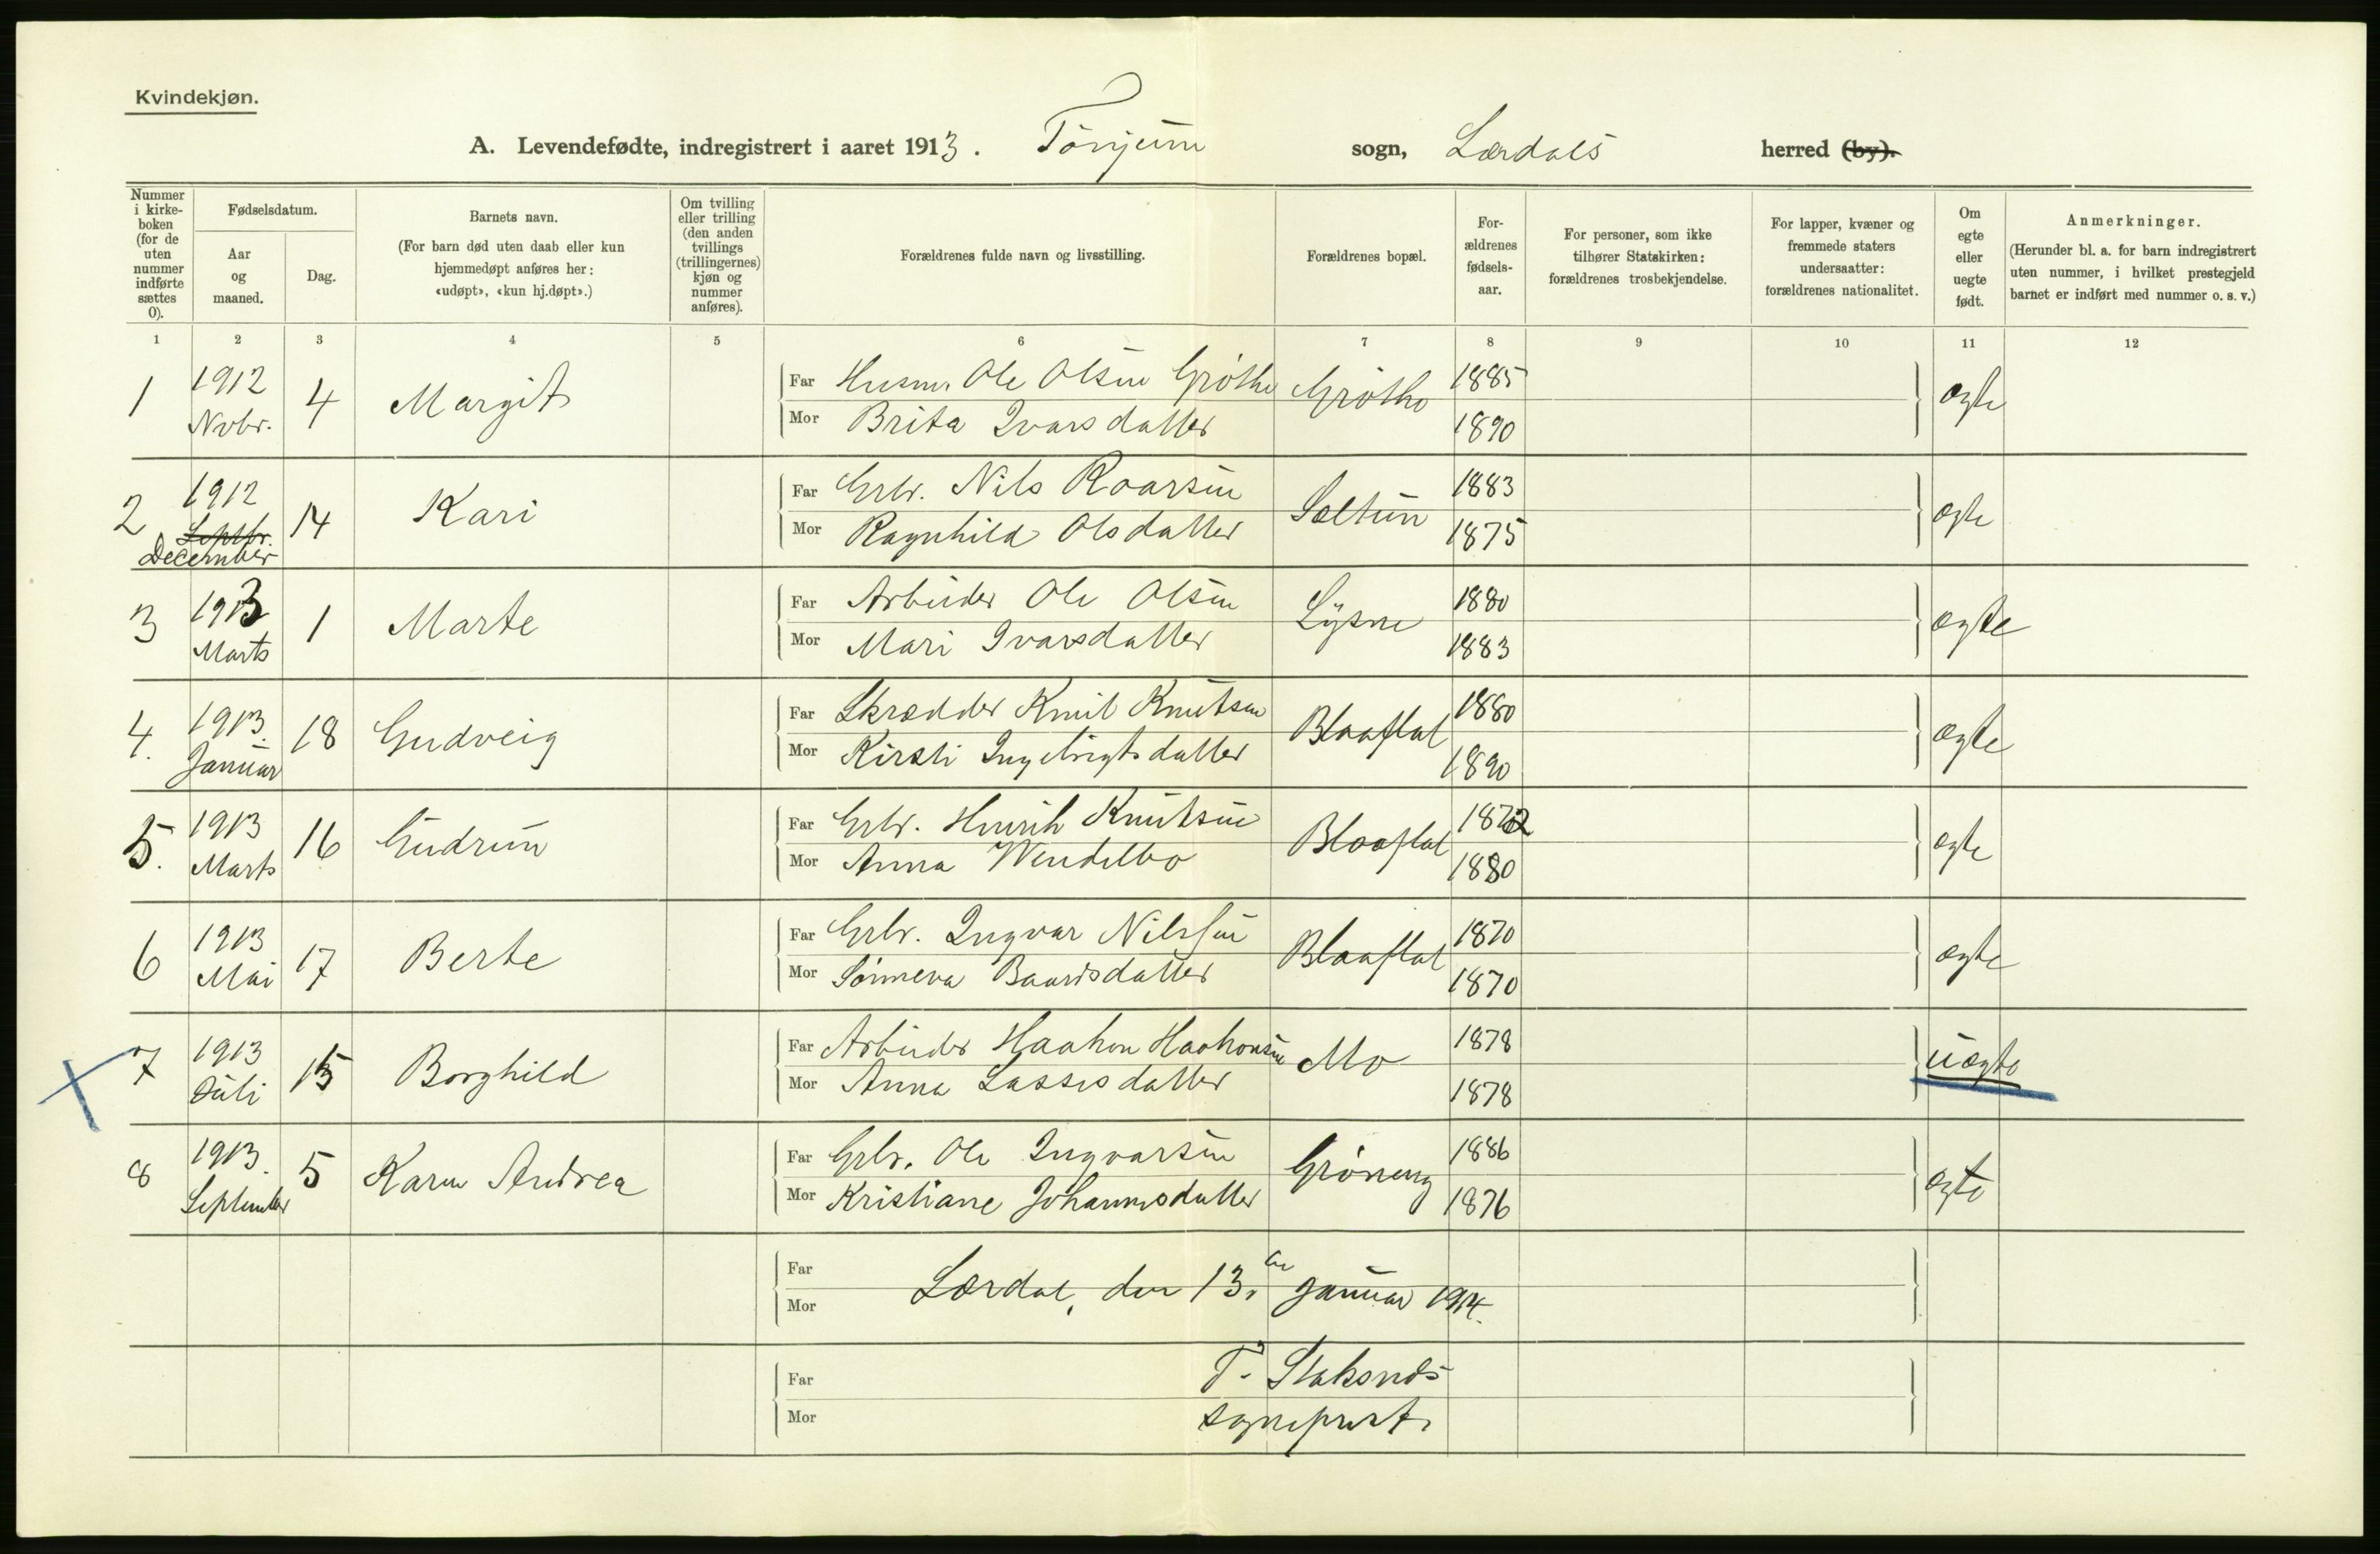 Kvindekjøn.
A. Levendefødte, indregistrert i aaret 1913. Tønjum sogn, Lærdals herred (by).
Nummer i kirkeboken (for de uten nummer indførte sættes 0).
Fødselsdatum.
Aar og maaned.
Dag.
Barnets navn.
(For barn død uten daab eller kun hjemmedøpt anføres her: «udøpt», «kun hj.døpt».)
Om tvilling eller trilling (den anden tvillings (trillingernes) kjøn og nummer anføres).
Forældrenes fulde navn og livsstilling.
Forældrenes bopæl.
Forældrenes fødselsaar.
For personer, som ikke tilhører Statskirken: forældrenes trosbekjendelse.
For lapper, kvæner og fremmede staters undersaatter: forældrenes nationalitet.
Om egte eller uegte født.
Anmerkninger.
(Herunder bl. a. for barn indregistrert uten nummer, i hvilket prestegjeld barnet er indført med nummer o. s. v.)
1 2 3 4 5 6 7 8 9 10 11 12
1 1912 Novbr. 4 Margit
Far Husm. Ole Olsen Grøtho Grøtho 1885 ægte
Mor Brita Ivarsdatter 1890
2 1912 Septbr. December 14 Kari
Far Grbr. Nils Roarsen Sæltun 1883 ægte
Mor Ragnhild Olsdatter 1875
3 1913 Marts 1 Marte
Far Arbeider Ole Olsen Lysne 1880 ægte
Mor Mari Ivarsdatter 1883
4. 1913. Januar 18 Gudveig
Far Skrædder Knut Knutsen Blaaflat 1880 ægte
Mor Kirsti Ingebrigtsdatter 1890
5. 1913 Marts 16 Gudrun
Far Grbr. Henrik Knutsen Blaaflat 1872 ægte
Mor Anna Wendelbo 1880
6 1913 Mai 17 Berte
Far Grbr. Ingvar Nilssen Blaaflat 1870 ægte
Mor Sønneva Baardsdatter 1870
7 1913 Juli 15 Borghild
Far Arbeider Haakon Haakonsen Mo 1878 uægte
Mor Anna Lassesdatter 1878
8 1913. September 5 Karen Andrea
Far Grbr. Ole Ingvarsen Grøneng 1886 ægte
Mor Kristiane Johannesdatter 1876
Far
Mor
Lærdal, den 13. januar 1914.
Far T.
Mor sogneprest.